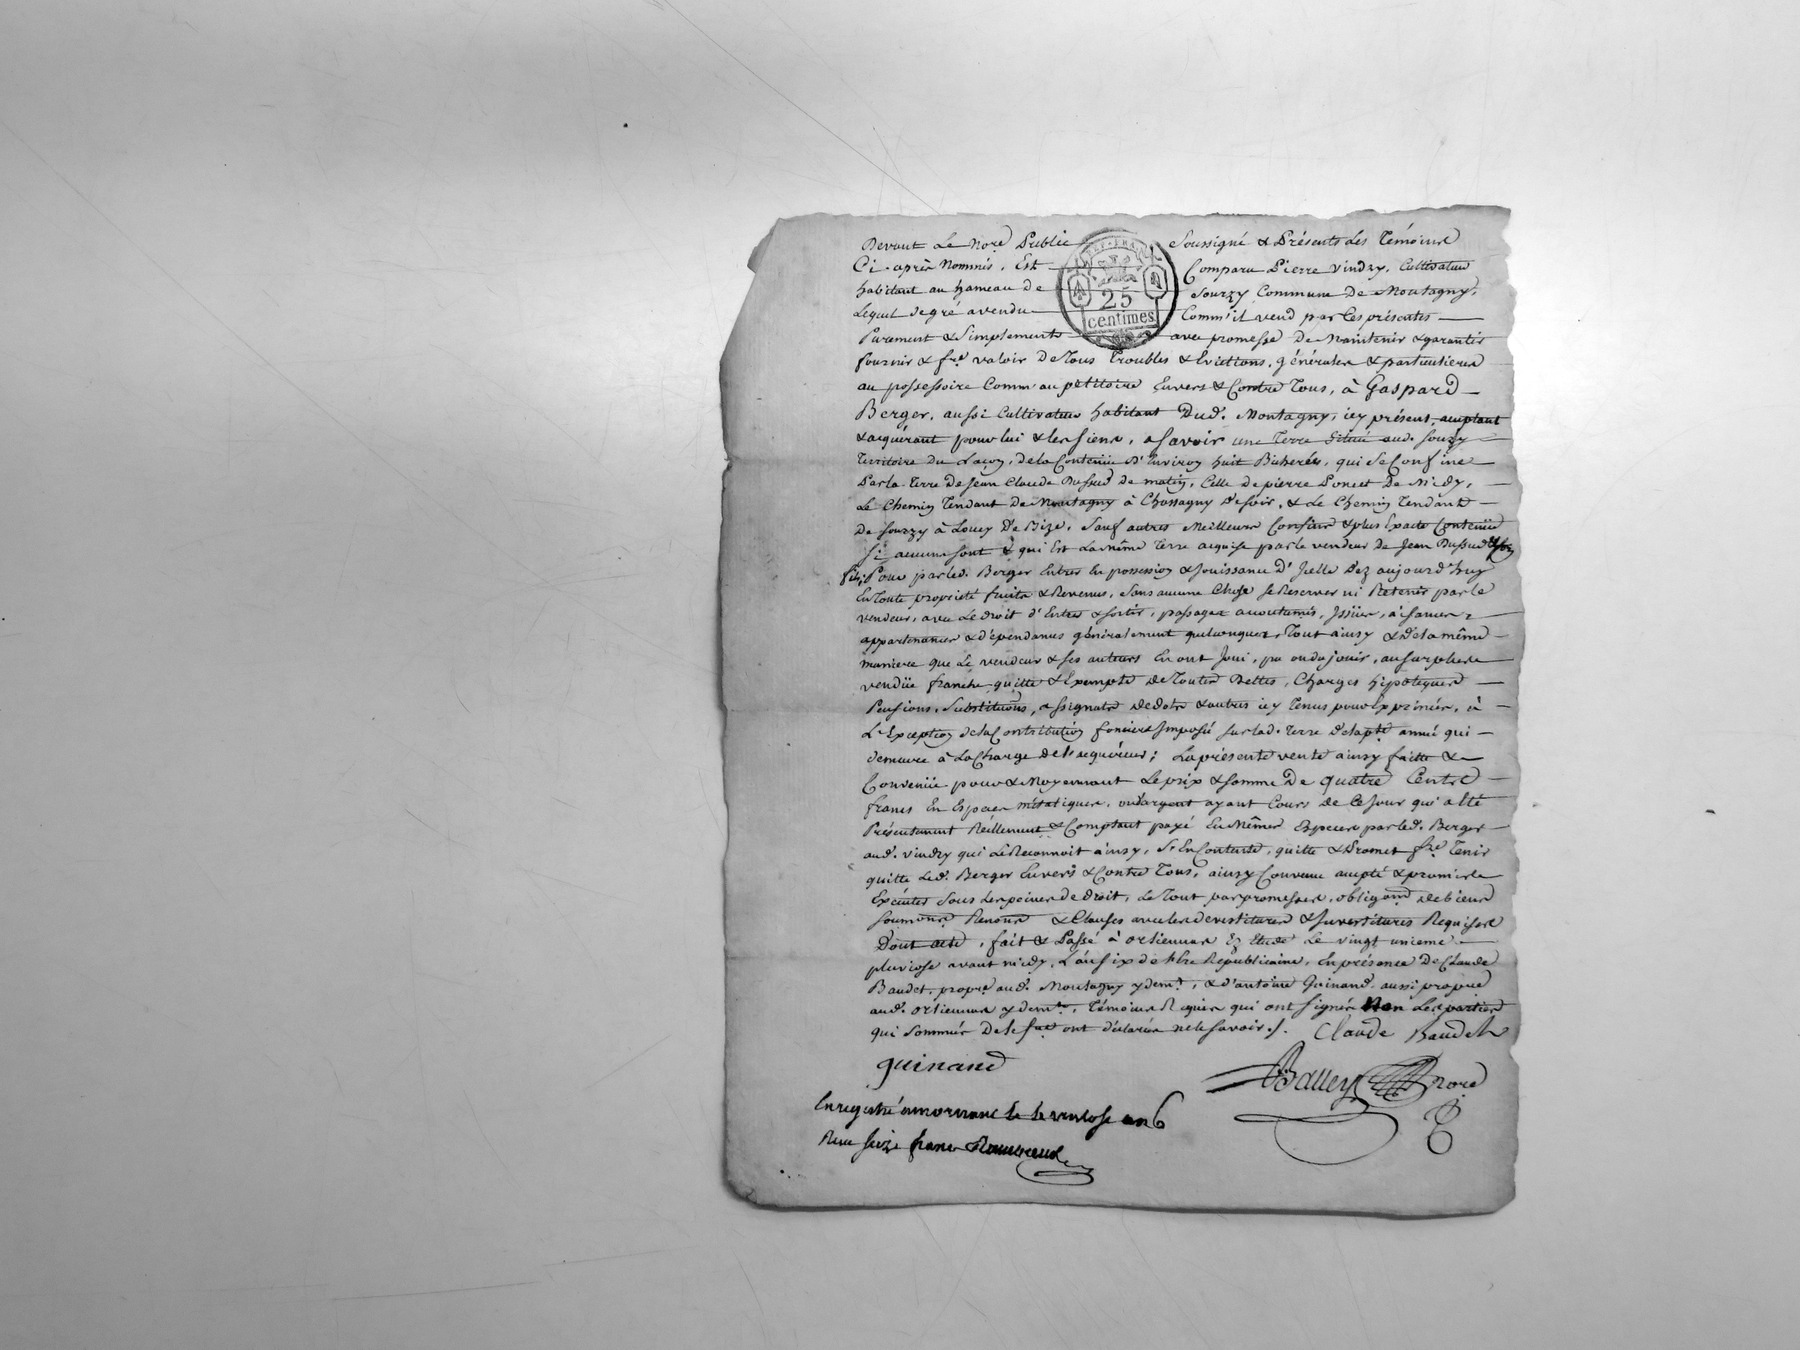 Devant Le No.re Public Soussigné & Présents Les Témoins
Ci-après Nommés, Est Comparu Pierre Vindry, Cultivateur
habitant au hameau de Sourzy Commune De Montagny,
Lequel de gré a vendu Comm'il vend par Ces présentes
Purement & Simplement avec promesse De Maintenir & garantir
fournir & f.re valoir De Tous Troubles & Evictions, générales & particulieres
au possessoire Comm'au pétitoire Envers & Contre Tous, à Gaspard
Berger, aussi Cultivateur habitant Dud. Montagny, icy présent, acceptant
& acquérant pour lui & les siens, a savoir une Terre Située aud. Sourzy
Territoire du Laçoy, de la Contenüe D'Environ huit Bicherées, qui Se Confine
Par la Terre de Jean Claude Dussud de matin, Celle de pierre Poncet De Midy,
Le Chemin Tendant De Montagny à Chassagny De soir, & Le Chemin Tendant
De Sourzy à Louey De Bize, Sauf autres Meilleurs Confins & plus Exacte Contenüe
Si aucuns sont & qui Est La même Terre acquise par le vendeur de Jean Dussud & son
fils, Pour par led. Berger Entrer En possession & Jouissance D'Icelle Dez aujourd'huy
En Toute propriété fruits & Revenus, Sans aucune Chose se Reserver ni Retenir par le
vendeur, avec Le droit d'Entrer & sortir, passages accoutumés, Issües, aisances,
appartenances & dépendances généralement quelconques, Tout ainsy & De la même
maniere que Le vendeur & Ses auteurs En ont Joui, pu ou du jouir, au surplus
vendüe franche quitte & Exempte de Toutes Dettes, Charges hipoteques
Pensions, Substitutions, assignats de dots & autres icy Tenus pour Exprimés, à
L'Exception de la Contribution fonciere Imposée sur lad. Terre De la pte. année qui
demeure à La Charge de l'acquéreur; La présente vente ainsy faitte &
Convenüe pour & Moyennant Le prix & Somme De quatre Cents
francs En Especes métaliques, ou d'argent ayant Cours de Ce Jour qui a Eté
Présentement Réellement & Comptant payé En Mêmes Especes par led. Berger
aud. Vindry qui Le Reconnoit ainsy, S'En Contente, quitte & Promet f.re Tenir
quitte Led. Berger Envers & Contre Tous, ainsy Convenu accepté & promis
Exécuter Sous Les peines de droit, Le Tout par promesses, obligaon. de biens
Soumons. Renons. & Clauses avec les devestitures & Investitures Requises
Dont acte, fait & Passé à orlienas En Etude Le vingt unieme
pluviose avant midy, L'an six de l'Ere Republicaine, En présence De Claude
Baudet, propre. aud. Montagny y dem.t, & d'antoine Guinand, aussi propre.
aud. orlienas y dem.t, Témoins Requis qui ont signé Non Les parties
qui Sommées De Le f.re ont déclaré ne le Savoir./. Claude Baudet
guinand
Balley No.re
Enregistré a mornant le ventose an 6
Recu seize francs
REP. FRA.
25
centimes